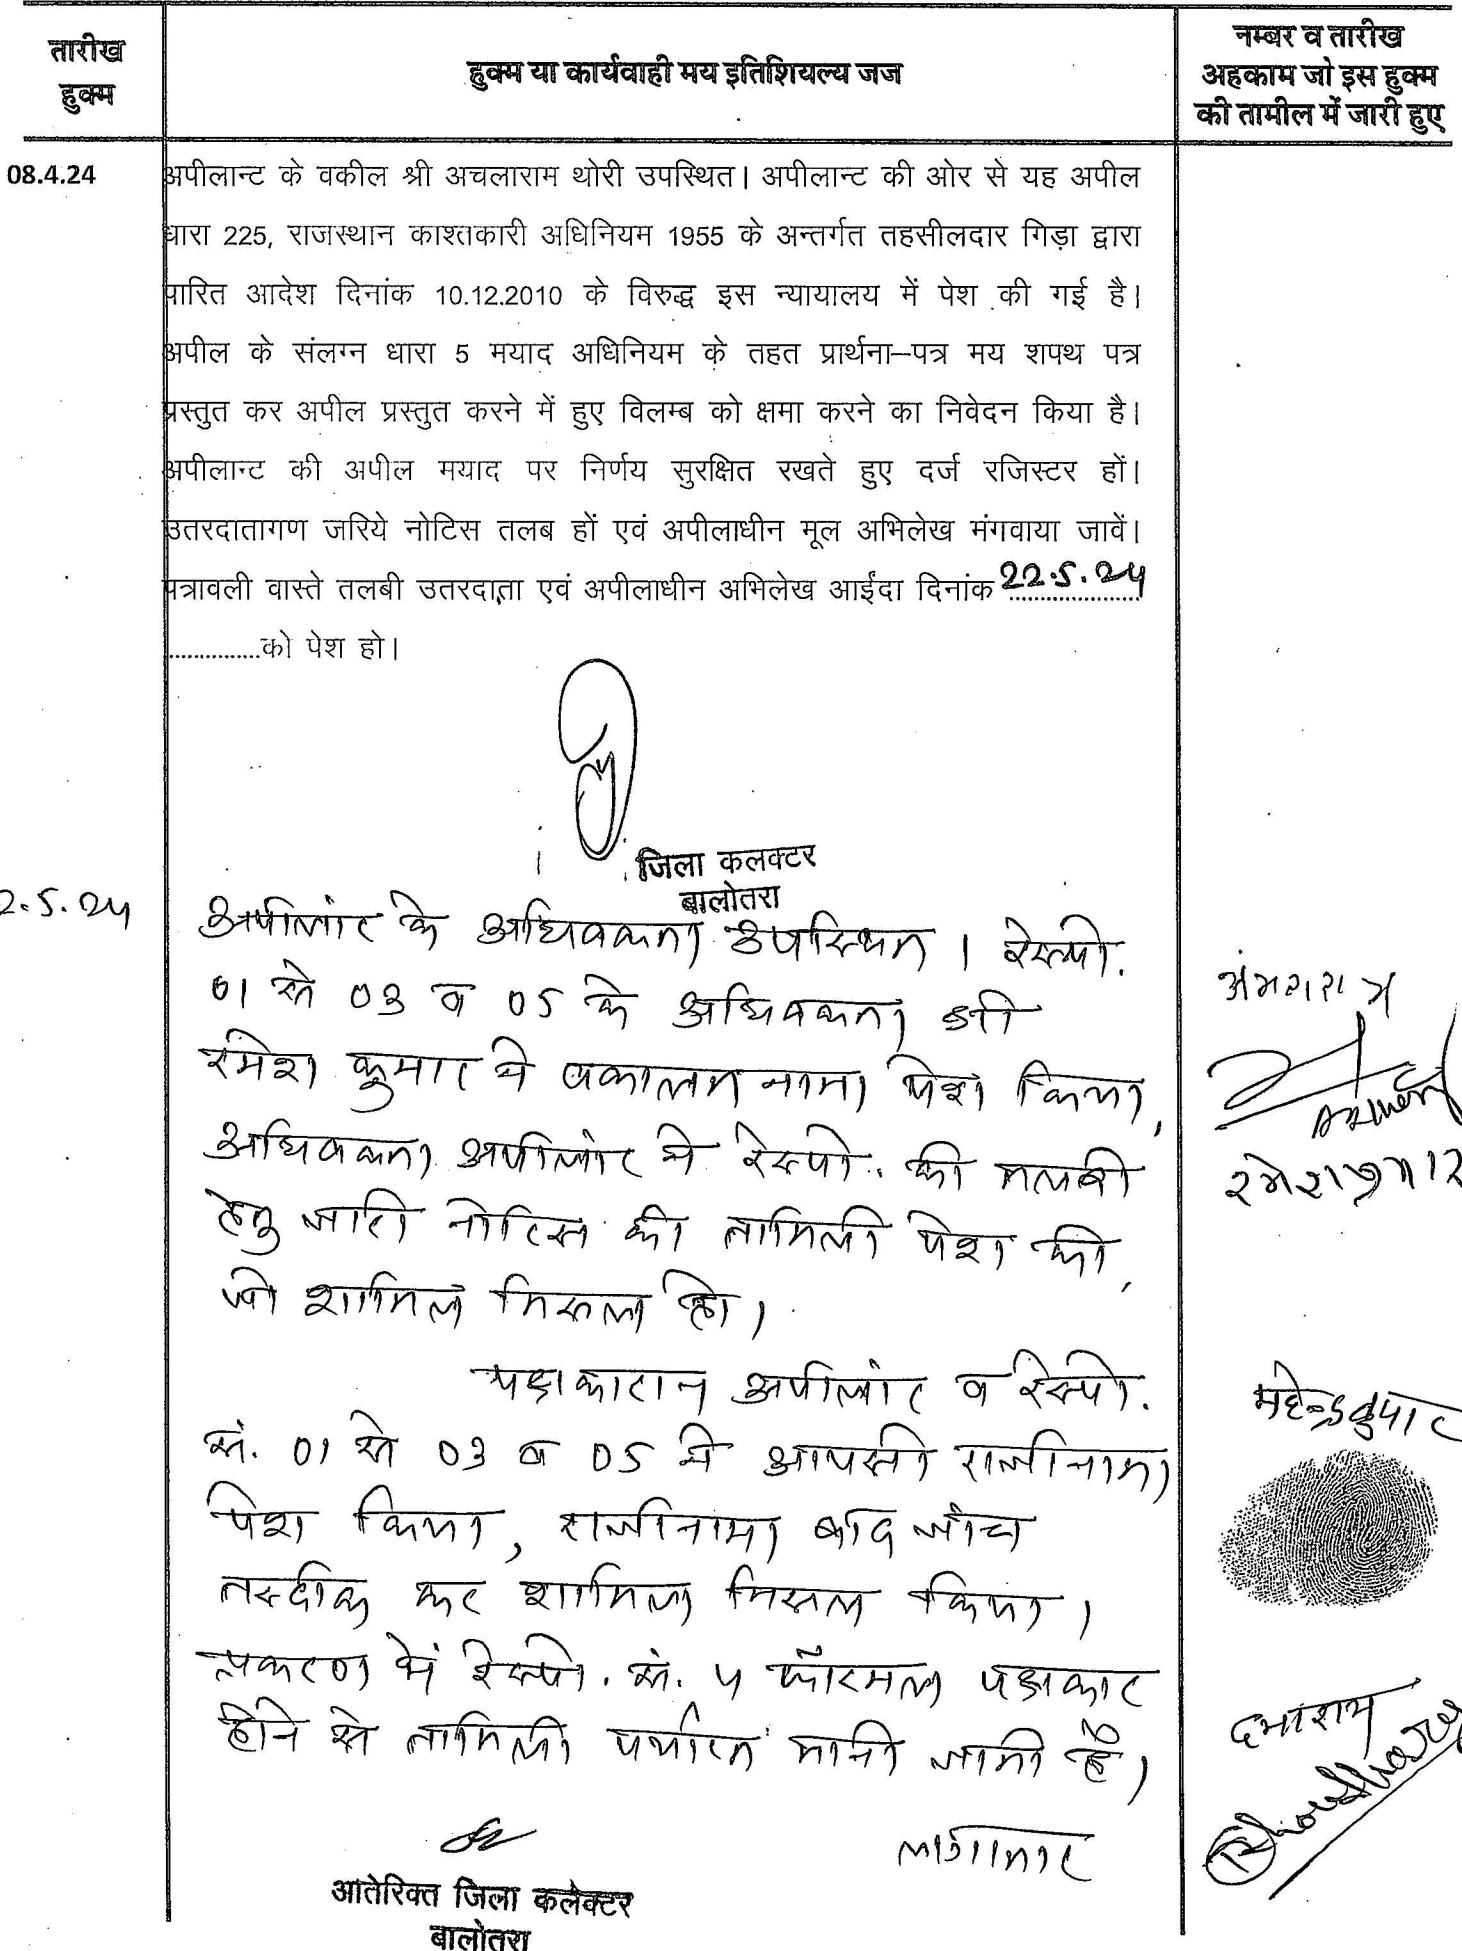 तारीख
हुक्म
हुक्म या कार्यवाही मय इतिशियल्य जज
नम्बर व तारीख
अहकाम जो इस हुक्म
की तामील में जारी हुए
08.4.24
अपीलान्ट के वकील श्री अचलाराम थोरी उपस्थित। अपीलान्ट की ओर से यह अपील
धारा 225, राजस्थान काश्तकारी अधिनियम 1955 के अन्तर्गत तहसीलदार गिड़ा द्वारा
पारित आदेश दिनांक 10.12.2010 के विरुद्ध इस न्यायालय में पेश की गई है।
अपील के संलग्न धारा 5 मयाद अधिनियम के तहत प्रार्थना–पत्र मय शपथ पत्र
प्रस्तुत कर अपील प्रस्तुत करने में हुए विलम्ब को क्षमा करने का निवेदन किया है।
अपीलान्ट की अपील मयाद पर निर्णय सुरक्षित रखते हुए दर्ज रजिस्टर हों।
उतरदातागण जरिये नोटिस तलब हों एवं अपीलाधीन मूल अभिलेख मंगवाया जावें।
पत्रावली वास्ते तलबी उतरदाता एवं अपीलाधीन अभिलेख आईंदा दिनांक 22.5.24
...............को पेश हो।
जिला कलक्टर
बालोतरा
2.5.24
अपीलांट के अधिवक्ता उपस्थित । रेस्पो.
01 से 03 व 05 के अधिवक्ता श्री
रमेश कुमार ने वकालतनामा पेश किया,
अधिवक्ता अपीलांट ने रेस्पो. की तलबी
हेतु जारी नोटिस की तामिली पेश की,
जो शामिल मिसल हो।
पक्षकारान अपीलांट व रेस्पो.
सं. 01 से 03 व 05 ने आपसी राजीनामा
पेश किया, राजीनामा बाद जांच
तस्दीक कर शामिल मिसल किया।
प्रकरण में रेस्पो. सं. 4 फॉरमल पक्षकार
होने से तामिली पर्याप्त मानी जाती है।
लगातार
रमेशकुमार
महेन्द्रकुमार
दमाराम
Choudhary
अतिरिक्त जिला कलेक्टर
बालोतरा